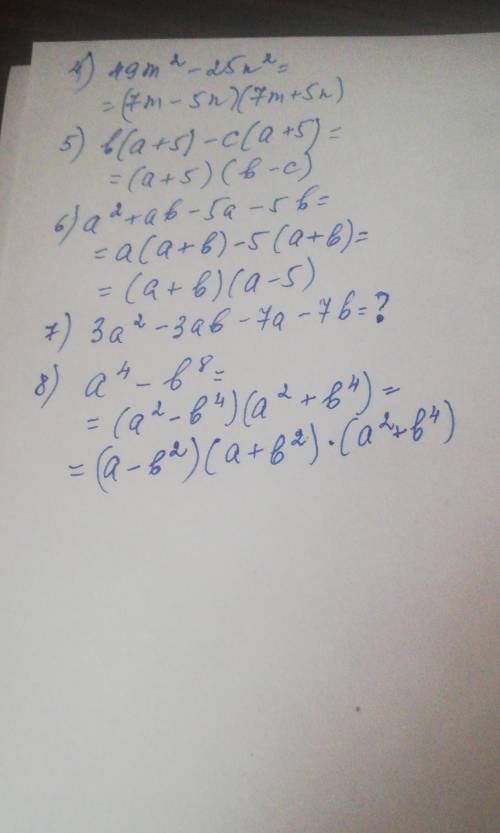 4) 49m² - 25n² =
= (7m - 5n)(7m + 5n)
5) b(a + 5) - c(a + 5) =
= (a + 5) (b - c)
6) a² + ab - 5a - 5b =
= a(a + b) - 5(a + b) =
= (a + b)(a - 5)
7) 3a² - 3ab - 7a - 7b = ?
8) a⁴ - b⁸ =
= (a² - b⁴)(a² + b⁴) =
= (a - b²)(a + b²) · (a² + b⁴)